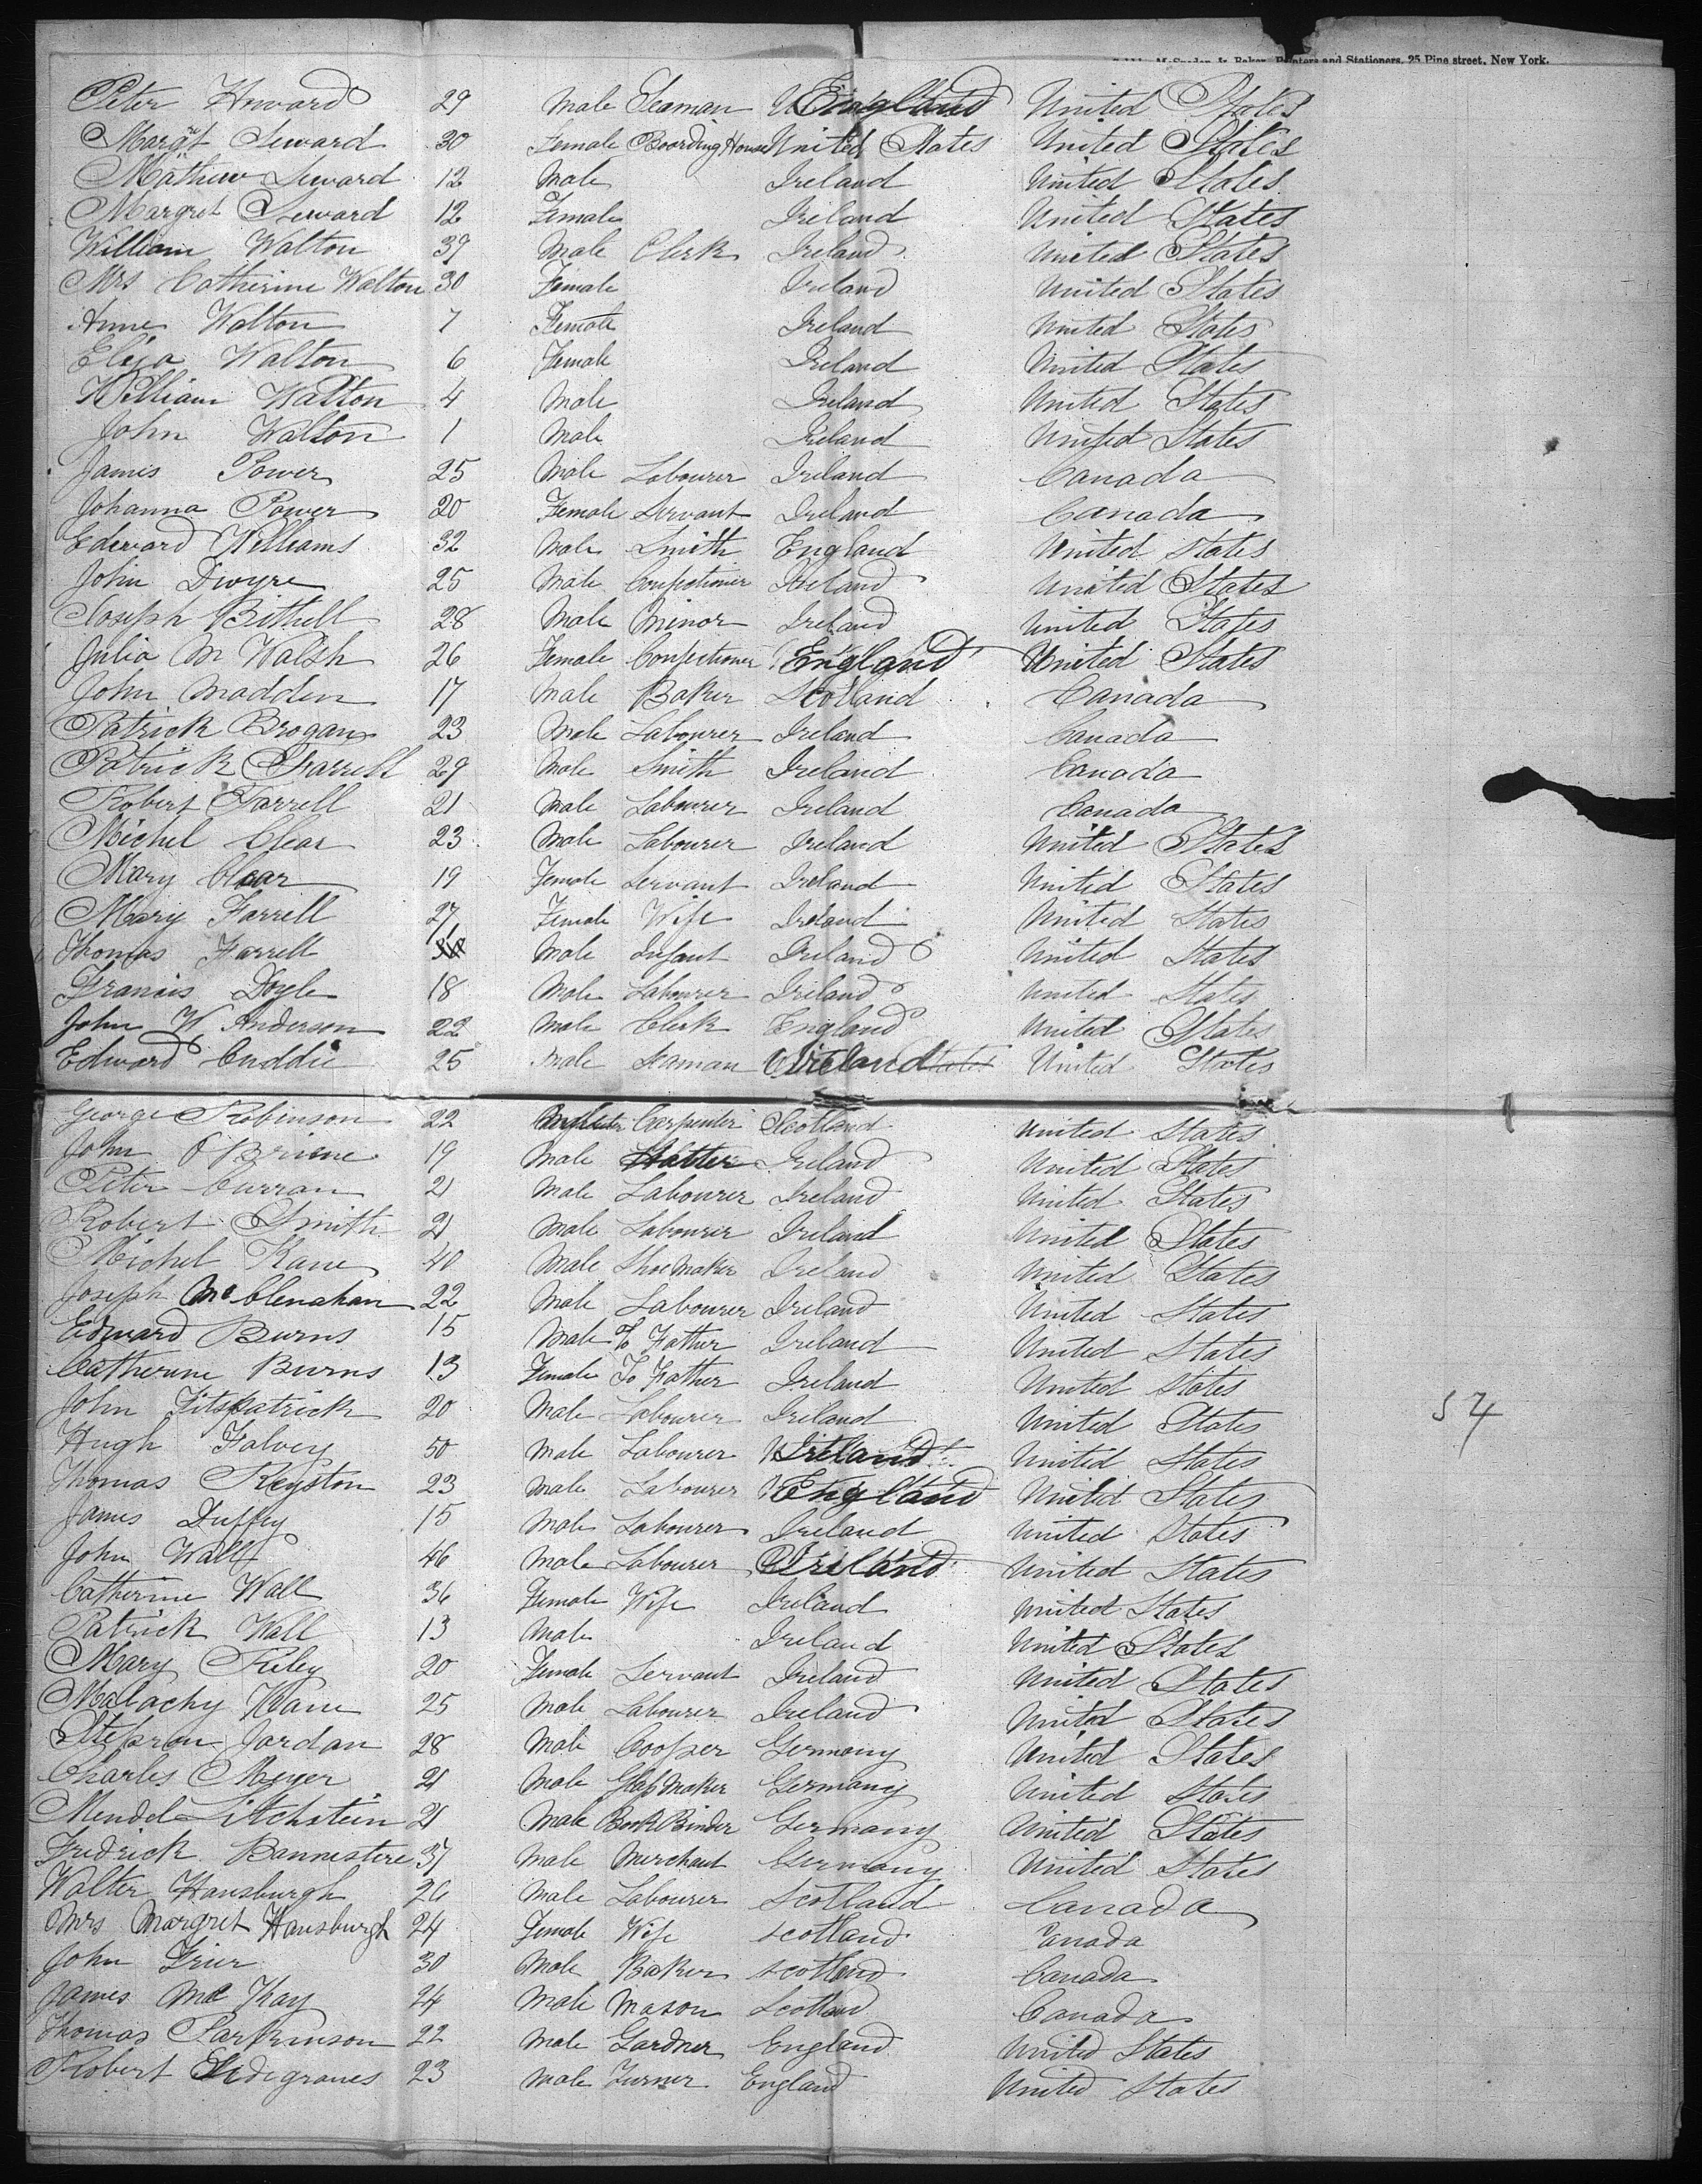 Baker, Printers and Stationers, 25 Pine street, New York.
Peter Howard 29 Male Seaman England United States
Margt Seward 30 Female Boarding House United States United States
Mathew Seward 12 Male Ireland United States
Margret Seward 12 Female Ireland United States
William Walton 39 Male Clerk Ireland United States
Mrs Catherine Walton 30 Female Ireland United States
Anne Walton 7 Female Ireland United States
Eliza Walton 6 Female Ireland United States
William Walton 4 Male Ireland United States
John Walton 1 Male Ireland United States
James Power 25 Male Labourer Ireland Canada
Johanna Power 20 Female Servant Ireland Canada
Edward Williams 32 Male Smith England United States
John Dwyre 25 Male Confectioner Ireland United States
Joseph Bithell 28 Male Minor Ireland United States
Julia M Walsh 26 Female Confectioner England United States
John Madden 17 Male Baker Scotland Canada
Patrick Brogan 23 Male Labourer Ireland Canada
Patrick Farrell 29 Male Smith Ireland Canada
Robert Farrell 21 Male Labourer Ireland Canada
Michel Clear 23 Male Labourer Ireland United States
Mary Clear 19 Female Servant Ireland United States
Mary Farrell 27 Female Wife Ireland United States
Thomas Farrell Male Infant Ireland United States
Francis Doyle 18 Male Labourer Ireland United States
John W Anderson 22 Male Clerk England United States
Edward Cuddie 25 Male Seaman Ireland United States
George Robinson 22 Carpenter Scotland United States
John O Briene 19 Male Hatter Ireland United States
Peter Curran 21 Male Labourer Ireland United States
Robert Smith 21 Male Labourer Ireland United States
Michel Kane 40 Male Shoe Maker Ireland United States
Joseph Mc Clenahan 22 Male Labourer Ireland United States
Edward Burns 15 Male To Father Ireland United States
Catherine Burns 13 Female To Father Ireland United States
John Fitspatrick 20 Male Labourer Ireland United States
Hugh Falvey 50 Male Labourer Ireland United States
Thomas Keyston 23 Male Labourer England United States
James Duffey 15 Male Labourer Ireland United States
John Wall 46 Male Labourer Ireland United States
Catherine Wall 36 Female Wife Ireland United States
Patrick Wall 13 Male Ireland United States
Mary Riley 20 Female Servant Ireland United States
Malachy Kane 25 Male Labourer Ireland United States
Jordan 28 Male Cooper Germany United States
Charles Meyer 21 Male Glass Maker Germany United States
Mendel Litchstein 21 Male Book Binder Germany United States
Fredrick Bannestire 37 Male Merchant Germany United States
Walter Hansburgh 26 Male Labourer Scotland Canada
Mrs Margret Hansburgh 24 Female Wife Scotland Canada
John Grier 30 Male Baker Scotland Canada
James Mc Kay 24 Male Mason Scotland Canada
Thomas Parkinson 22 Male Gardner England United States
Robert 23 Male Turner England United States
57